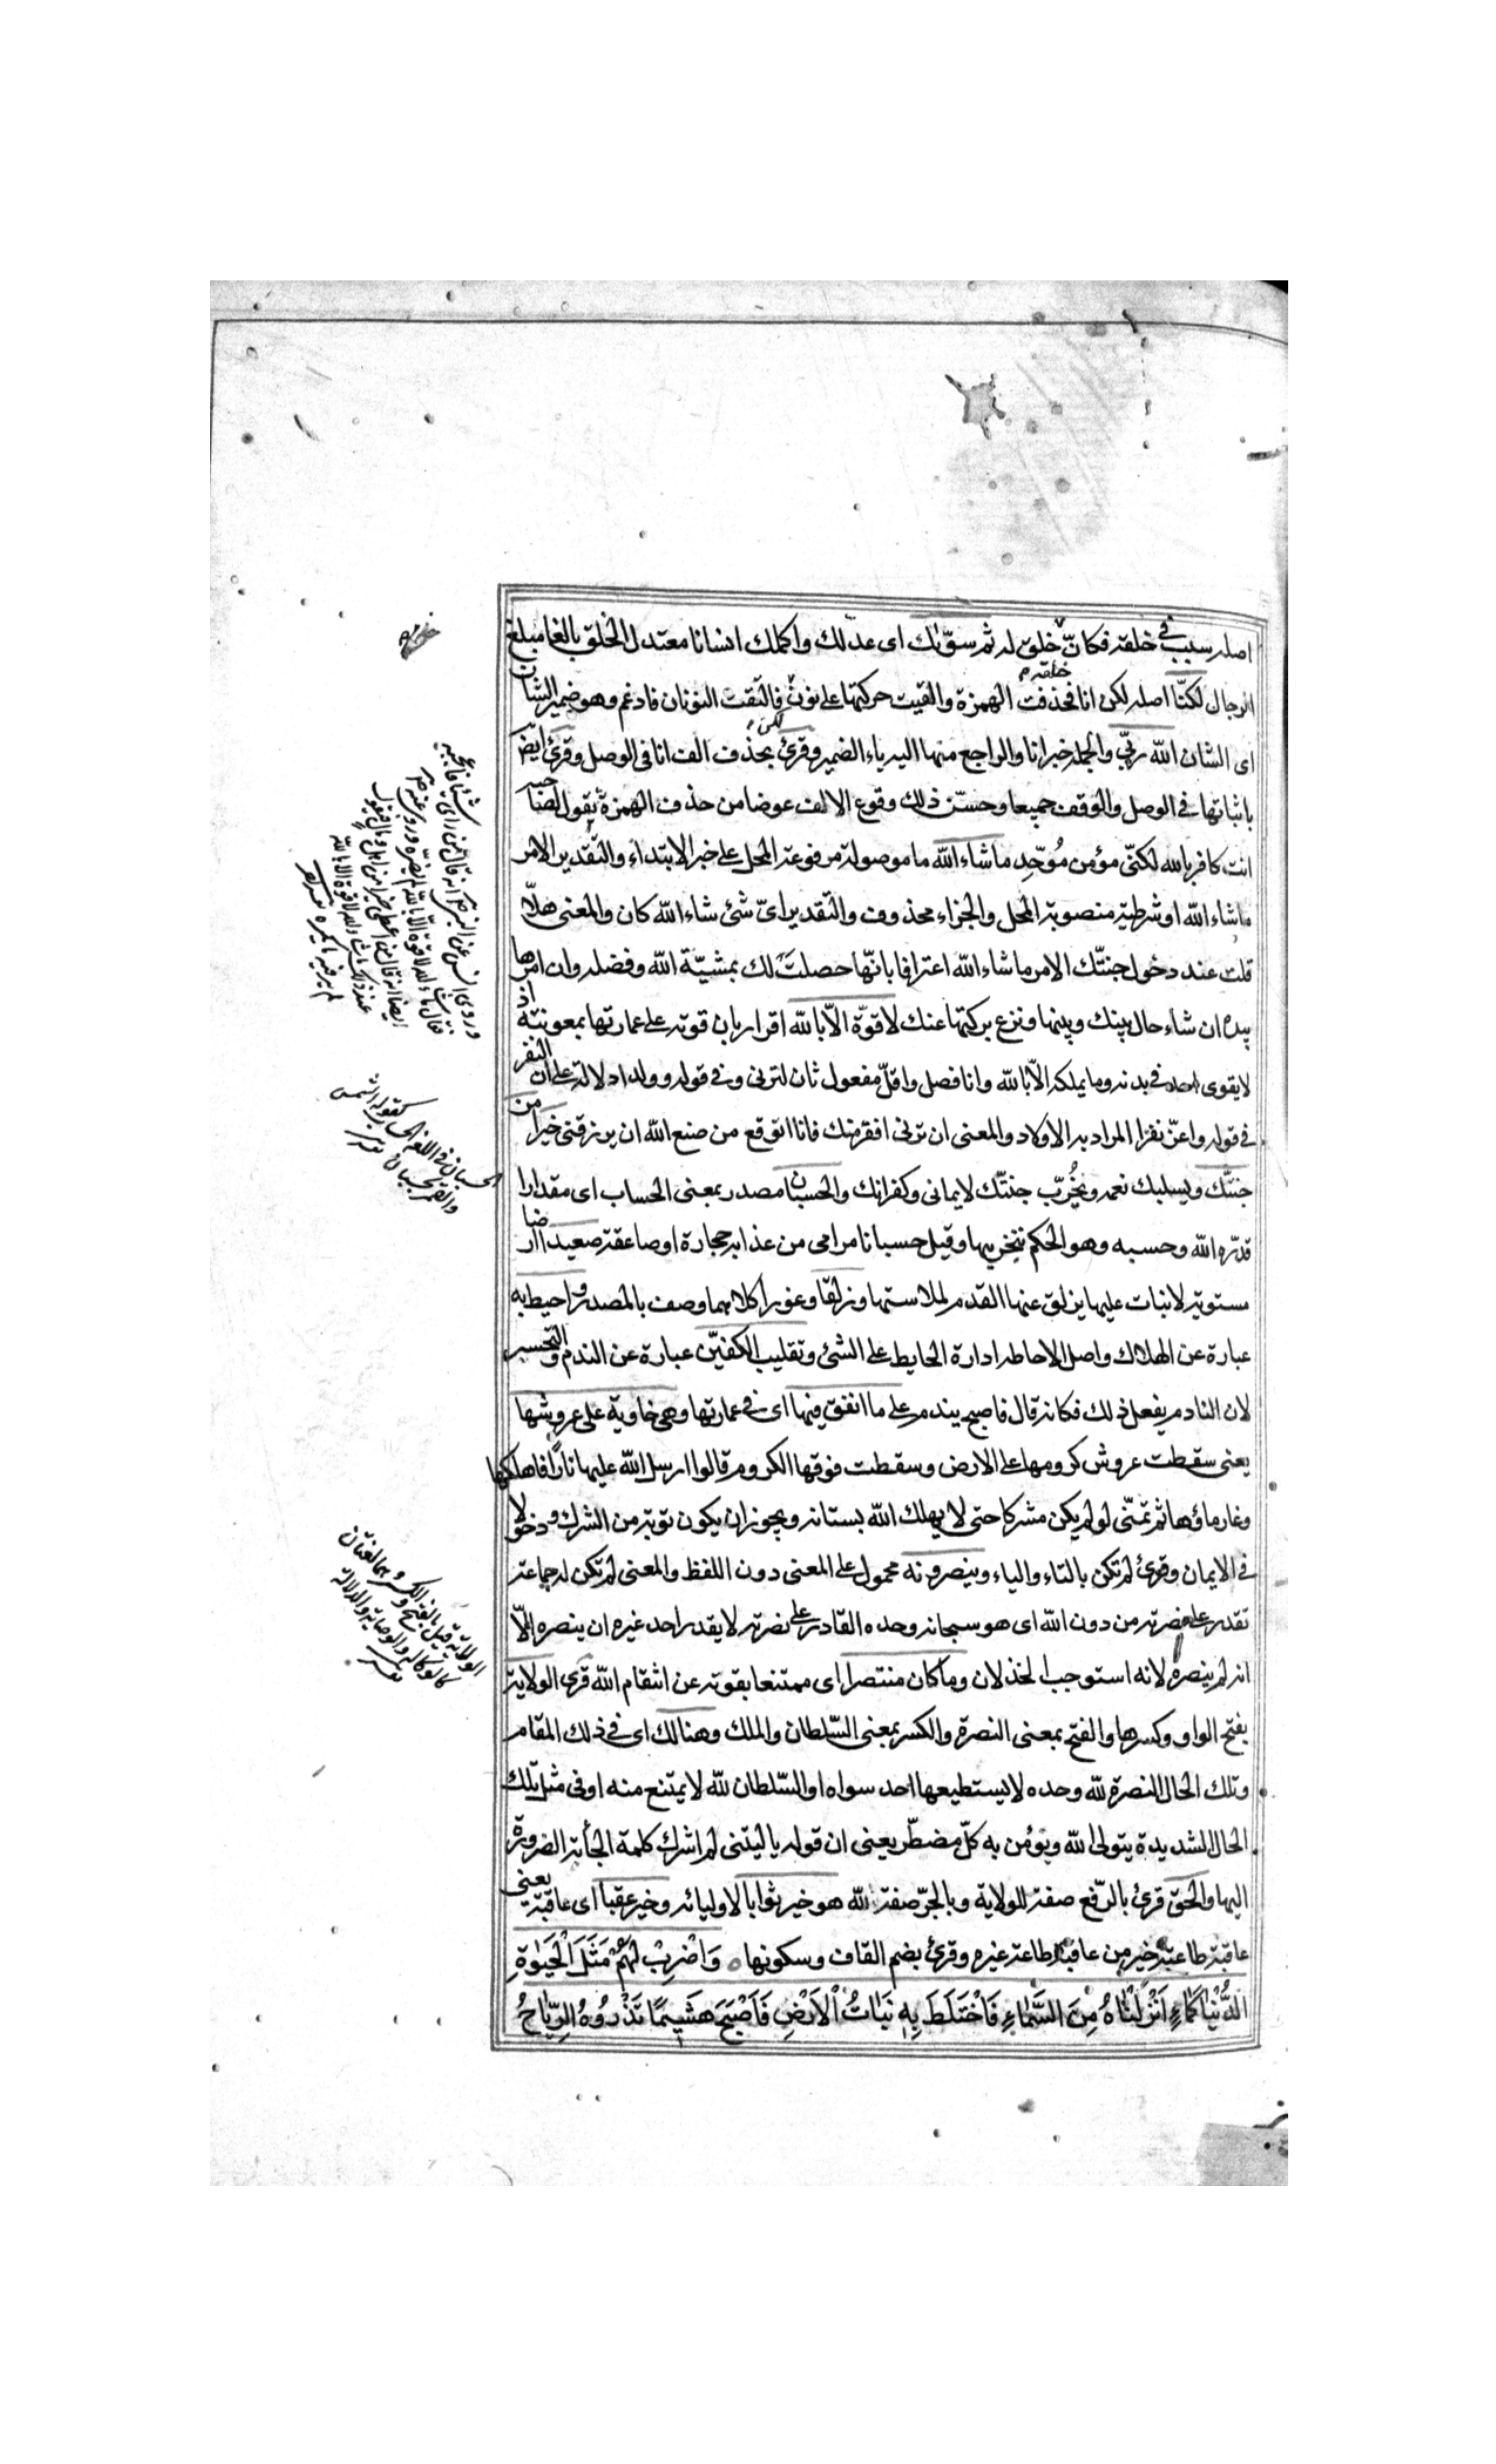 اصله سبب في خلقته فكانّ خلقه خلق له ثم سوّىٰك اى عدلك واكملك انسانا معتدل الخلق بالغا مبلغ
الرجال لكنّا اصله لكن انا فحذفت الهمزة والقيت حركتها على نون لكن فالتقت النونان فادغم وهو ضمير الشان
اى الشان الله ربّي والجملة خبر انا والراجع منها اليه ياء الضمير وقرئ بحذف الف انا فى الوصل وقرئ ايضً
باثباتها في الوصل والوقف جميعا وحسّن ذلك وقوع الالف عوضا من حذف الهمزة يقول لصاحبه
انت كافر بالله لكنّى مؤمن مُوحّد ما شاء الله ما موصولة مرفوعة المحل على خبر الابتداء والتقدير الامر
ما شاء الله او شرطية منصوبة المحل والجزاء محذوف والتقدير اىّ شئ شاء الله كان والمعنى هلّا
قلت عند دخول جنتّك الامر ما شاء الله اعترافا بانّها حصلت لك بمشيّة الله وفضله وان امرها
بيده ان شاء حال بينك وبينها ونزع بركتها عنك لا قوّة الّا بالله اقرار بان قوته على عمارتها بمعونته اذ
لا يقوى احد في بدنه وما يملكه الّا بالله وانا فصل واقلّ مفعول ثان لترنى وفى قوله وولدا دلالة على ان النفر
في قوله واعزّ نفرًا المراد به الاولاد والمعنى ان ترنى افقر منك فانا اتوقع من صنع الله ان يرزقنى خيرا من
جنتّك ويسلبك نعمه ويُخرّب جنتّك لايمانى وكفرانك والحسبان مصدر بمعنى الحساب اى مقدارا
قدّره الله وحسبه وهو الحكم بتخريبها وقيل حسبانا مرامى من عذابه حجارة او صاعقة صعيدا ارضا
مستوية لا نبات عليها يزلق عنها القدم لملاستها وزلقا وغورا كلاهما وصف بالمصدر واحيط به
عبارة عن الهلاك واصل الاحاطه ادارة الحايط على الشئ وتقليب الكفيّن عبارة عن الندم والتحسير
لان النادم يفعل ذلك فكانه قال فاصبح يندم على ما انفق فيها اى فى عمارتها وهى خاوية على عروشها
يعنى سقطت عروش كرومها على الارض وسقطت فوقها الكروم قالوا ارسل الله عليها نارًا فاهلكها
وغار ماؤها ثم تمنّى لو لم يكن مشركا حتى لا يهلك الله بستانه ويجوز ان يكون توبة من الشرك ودخولا
في الايمان وقرئ لم تكن بالتاء والياء وينصرونه محمول على المعنى دون اللفظ والمعنى لم تكن له جماعة
تقدر على نصرته من دون الله اى هو سبحانه وحده القادر على نصرته لا يقدر احد غيره ان ينصره الّا
انه لم ينصره لانه استوجب الخذلان وما كان منتصرا اى ممتنعا بقوته عن انتقام الله قرئ الولاية
بفتح الواو وكسرها والفتح بمعنى النصرة والكسر بمعنى السّلطان والملك وهنالك اى في ذلك المقام
وتلك الحال النصرة لله وحده لا يستطيعها احد سواه او السّلطان لله لا يمتنع منه او فى مثل تلك
الحال الشديدة يتولى الله ويؤمن به كلّ مضطّر يعنى ان قوله يا ليتنى لم اشرك كلمة الجأته الضرورة
اليها والحق قرئ بالرّفع صفة للولاية وبالجرّ صفة لله هو خير ثوابا لاوليائه وخير عقبا اى عاقبة يعنى
عاقبة طاعته خير من عاقبة طاعة غيره وقرئ بضم القاف وسكونها وَاضْرِبْ لَهُمْ مَثَلَ الْحَيٰوةِ
الدُّنْيَا كَمَاءٍ اَنْزَلْنَاهُ مِنَ السَّمَاءِ فَاخْتَلَطَ بِهِ نَبَاتُ الْاَرْضِ فَاَصْبَحَ هَشِيمًا تَذْرُوهُ الرِّيَاحُ
وروى انس عن النبي انه قال من راى شيئا فاعجبه
فقال ما شاء الله لا قوة الا بالله لم يضره وروى عنه
ايضا انه قال من اعطى خيرا من اهل او مال فيقول
عند ذلك ما شاء الله لا قوة الا بالله
لم ير فيه ما يكره
الحسبان في اللغة الحساب كقوله الشمس
والقمر بحسبان
الولاية قيل بالفتح والكسر وهما لغتان
كالوكالة والوصاية والدلالة